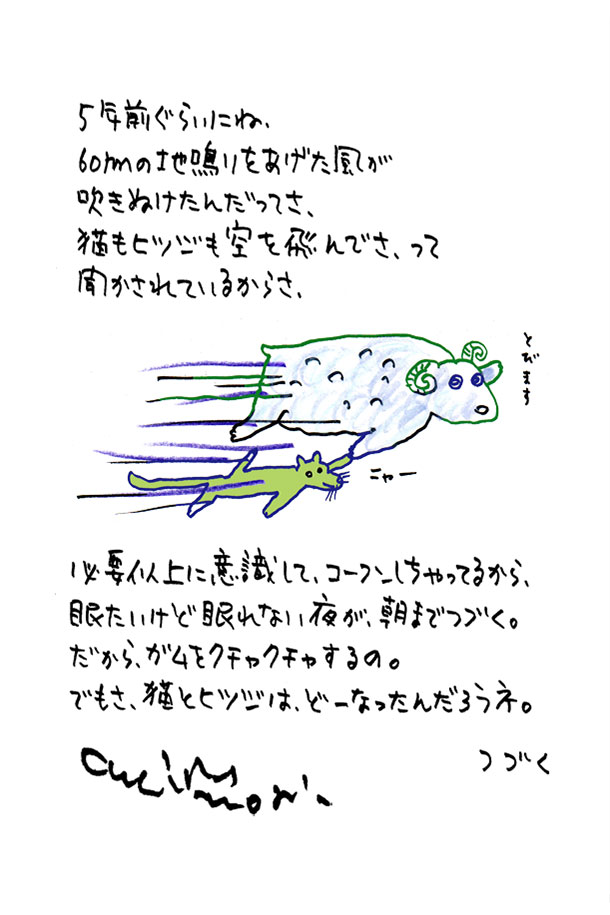 5年前ぐらいにね、
60mの地鳴りをあげた風が
吹きぬけたんだってさ、
猫もヒツジも空を飛んでさ、って
聞かされているからさ、
とびます
ニャー
必要以上に意識して、コーフンしちゃってるから、
眠たいけど眠れない夜が、朝までつづく。
だから、ガムをクチャクチャするの。
でもさ、猫とヒツジは、どーなったんだろうネ。
つづく